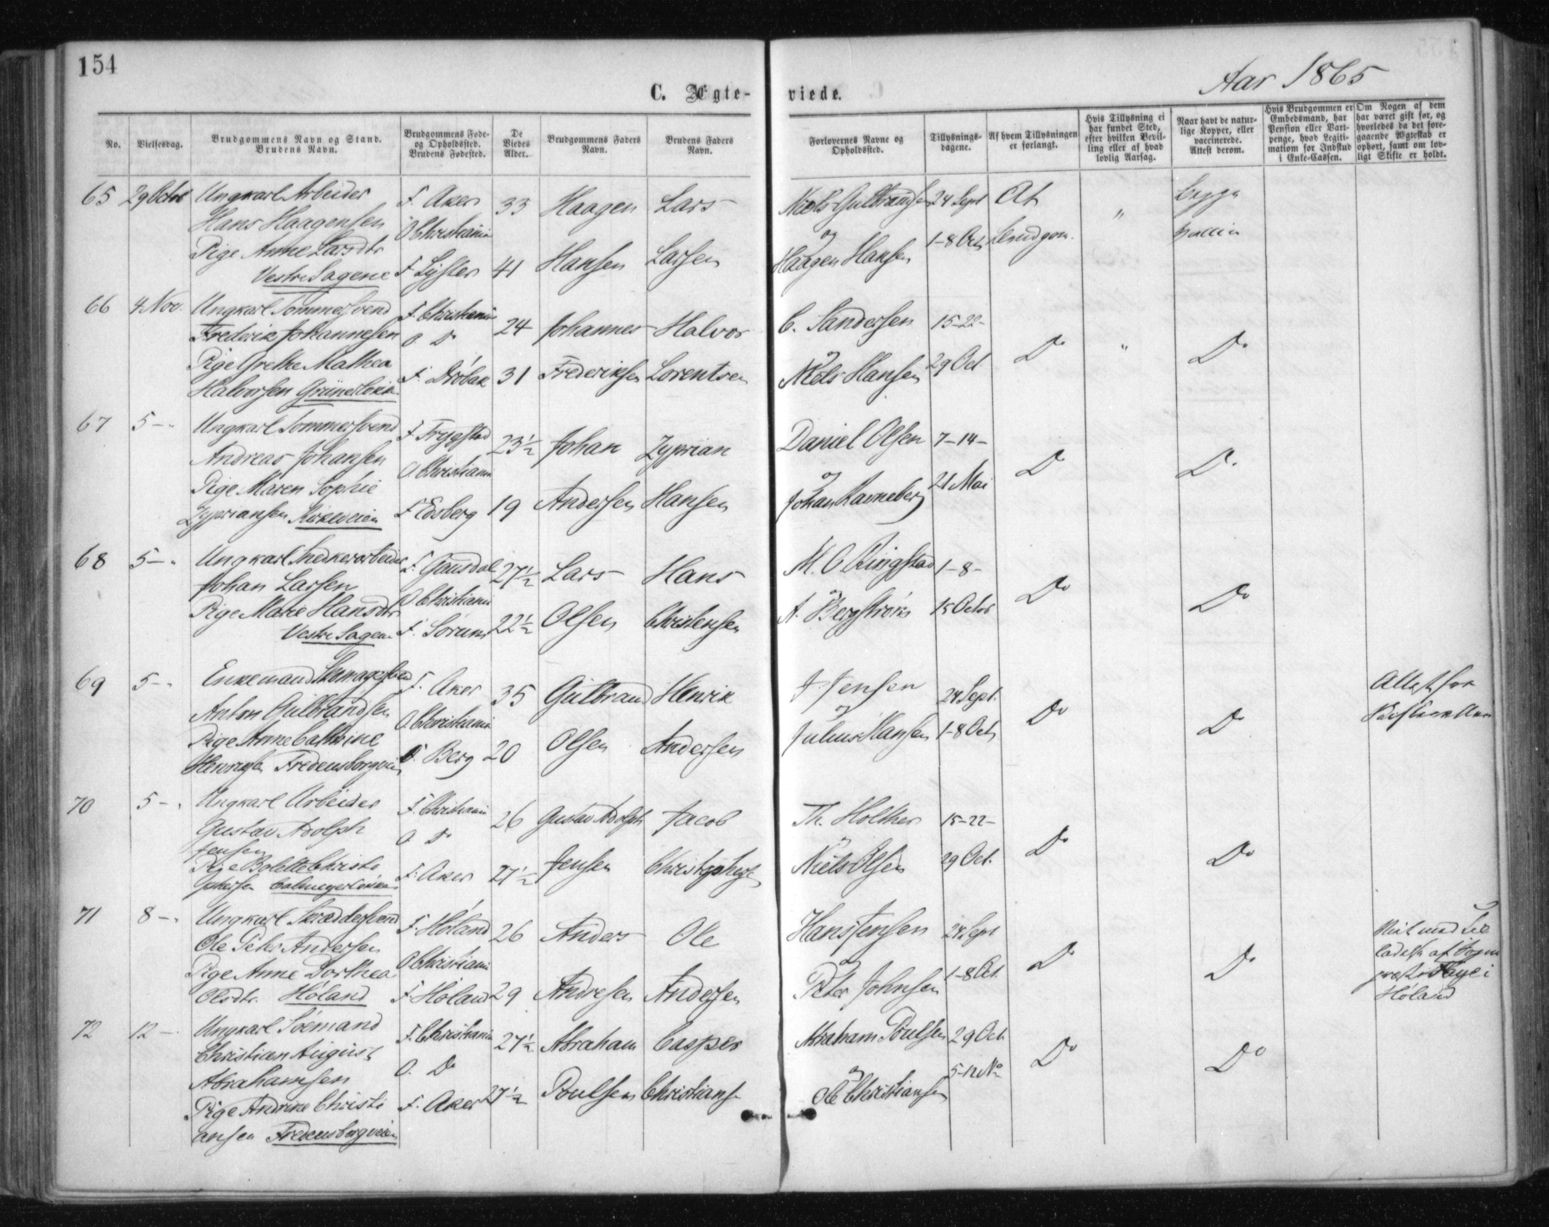 154
Aar 1865
C. Ægteviede.
No.
Vielsesdag.
Brudgommens Navn og Stand.
Brudens Navn.
Brudgommens Føde-
og Opholdssted.
Brudens Fødested.
De
Viedes
Alder.
Brudgommens Faders
Navn.
Brudens Faders
Navn.
Forlovernes Navne og
Opholdssted.
Tillysnings-
dagene.
Af hvem Tillysningen
er forlangt.
Hvis Tillysning ei
har fundet Sted,
efter hvilken Bevil-
ling eller af hvad
lovlig Aarsag.
Naar havt de natur-
lige Kopper, eller
vaccinerede.
Attest derom.
Hvis Brudgommen er
Embedsmand, har
Pension eller Vart-
penge, hvad Legiti-
mation for Indskud
i Enke-Cassen.
Om Nogen af dem
har været gift før, og
hvorledes da det fore-
gaaende Ægteskab er
ophørt, samt om lov-
ligt Skifte er holdt.
65 29 Octbr Ungkarl Arbeider F. Aker 33 Haagen Lars Niels Gulbrandsen 24 Sept
Hans Haagensen O Christiania og
Pige Anne Larsdtr Hansen Larsen Haagen Hansen 1-8 Oct
Vestre Sagene F. 41
66 4 Nov. Ungkarl F. Christiania 24 Johannes Halvor C. Sandersen 15-22-
Frederik Johannesen O Do Do " Do
Pige Grethe Mathea F. Drøbak 31 Frederiksen Lorentsen Niels Hansen 29 Oct
Halvorsen Grünerløkken
67 5 - Ungkarl F. Trygstad 23½ Johan Zyprian Daniel Olsen 7-14-
Andreas Johansen O Christiania og Do Do
Pige Maren Sophie Andersen Hansen Johan 21 Mai
Zypriansen F Edsberg 19
68 5 - Ungkarl F. Gausdal 27½ Lars Hans M. O Ringstad 1-8-
Johan Larsen O Christiania Do Do
Pige Marie Hansdtr F. Sørum 22½ Olsen Christensen A. Bergstrøm 15 Octbr
Vestre Sagene
69 5 - Enkemand F. Aker 35 Gulbrand Henrik Jensen 24 Sept. Attest for
Anton Gulbrandsen O Christiania og Do Do
Pige Anne Cathrine F. Berg 20 Olsen Andersen Julius Hansen 1-8 Oct
Henriksen Fredensborgveien
70 5 - Ungkarl Arbeider F. Christiania 26 Gustav Adolph Jacob Th. Holther 15-22-
Gustav Adolph O Do
Jensen Do Do
Pige Bolette Christo F. Aker 27½ Jensen Niels Olsen 29 Oct.
phersen
71 8 - Ungkarl Skræddersvend F. Høland 26 Anders Ole Hans Jensen 24 Sept
Ole Peter Andersen O Christiania og Do Do
Pige Anne Dorthea F. Høland 29 Andresen Andersen Peter Johnsen 1-8 Oct
Olsdtr. Høland
Høland
72 12 - Ungkarl Sømand F. Christiania 27½ Abraham Casper Abraham Poulsen 29 Oct.
Christian August O. Do og 5-12 No Do Do
Abrahamsen
Pige Andrine Christi F. Aker 27½ Poulsen Christians Ole Christiansen
ansen Fredensborgveien